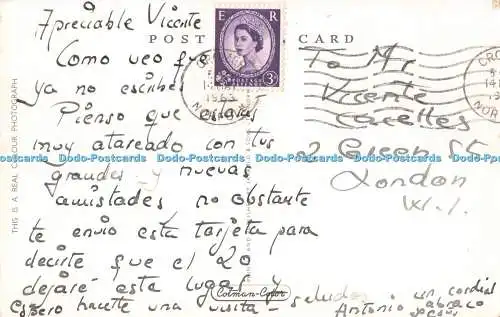 Apreciable Vicente
Como veo que
ya no escribes
Pienso que estaras
muy atareado con tus
grandes y nuevas
amistades no obstante
te envio esta tarjeta para
decirte que el 20
dejaré este lugar y
Espero hacerte una visita - saludos
un cordial
abrazo
Antonio
POST CARD
E R
POSTAGE
3D
1963
To Mr
Vicente
2 Green St
London
W.1.
CRO
NOR
THIS IS A REAL COLOUR PHOTOGRAPH
Colman-Color
Dodo-Postcards Dodo-Postcards Dodo-Postcards Dodo-Postcards Dodo-Postcards